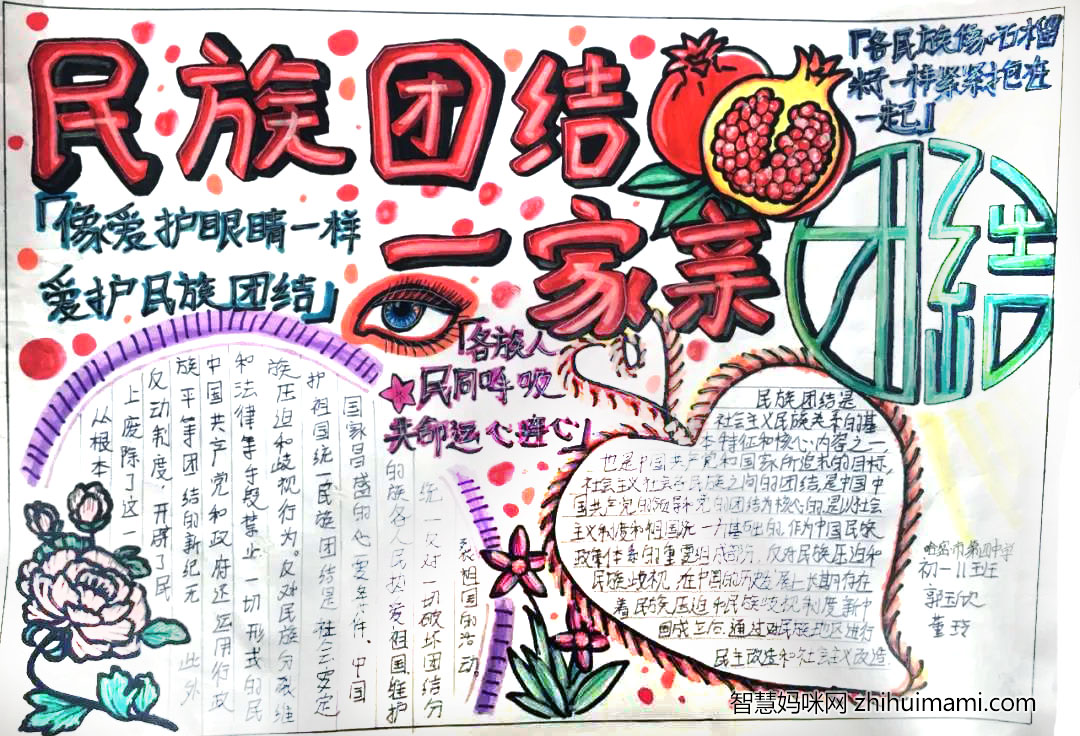 民族团结
一家亲
「各民族像石榴
籽一样紧紧抱在
一起」
「像爱护眼睛一样
爱护民族团结」
「各族人
民同呼吸
共命运心连心」
团结
民族团结是
社会主义民族关系的基
本特征和核心内容之一
也是中国共产党和国家所追求的目标,
社会主义社会各民族之间的团结,是中国
国共产党的领导和党的团结为核心的,是以社会
主义制度和祖国统一为基
的,作为中国民族
政策体系的重要组成部分,反对民族压迫和
民族歧视,在中国的历史
上长期存在
着民族压迫和民族歧视制度,新中
国成立后,通过对民族地区进行
民主改造和社会主义改造.
从根本
上废除了这一
反动制度,开辟了民
族平等团结的新纪元 此外
中国共产党和政府还运用行政
和法律等手段禁止一切形式的民
族压迫和歧视行为。反对民族分裂维
护祖国统一民族团结是社会安定
国家昌盛的必要条件. 中国
的族各人民热爱祖国,维护
统一反对一切破坏团结分
裂祖国的活动.
哈密市第四中学
初一11班
董玲
智慧妈咪网 zhihuimami.com